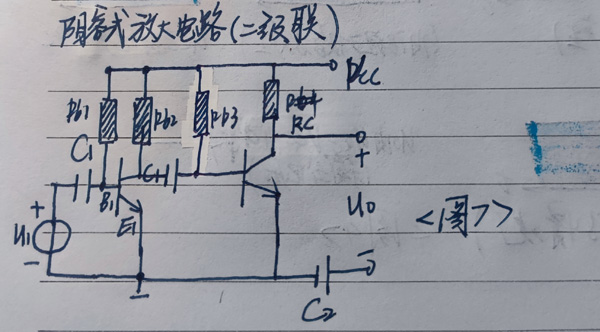 阻容式放大电路(二级联)
Vcc
Rb1
Rb2
Rb3
RC
C1
C1
B1
E1
+
U1
-
+
U0
-
C2
<图7>